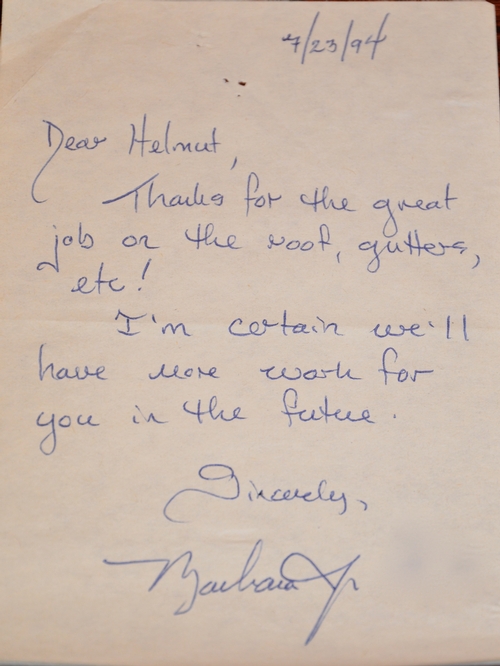 7/23/94
Dear Helmut,
Thanks for the great
job on the roof, gutters,
etc!
I'm certain we'll
have more work for
you in the future.
Sincerely,
Barbara